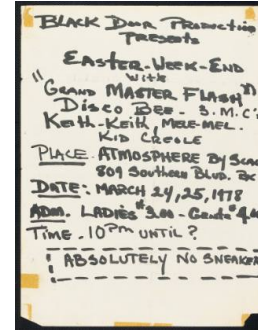 BLACK DOOR PRODUCTION
PRESENTS
EASTER-WEEK-END
WITH
"GRAND MASTER FLASH"
DISCO BEE - 3. M.C'S
KEITH-KEITH, MELE-MEL.
KID CREOLE
PLACE. ATMOSPHERE BY
809 SOUTHERN BLVD. BX
DATE: MARCH 24,25,1978
ADM. LADIES $3.00 - Gents $4.00
TIME. 10PM UNTIL?
ABSOLUTELY NO